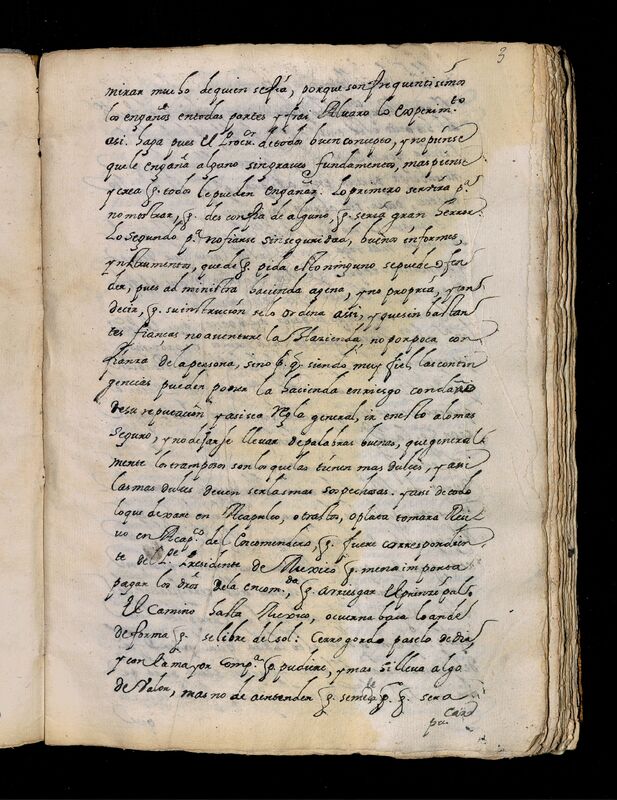 3
mirar mucho de quien se fia, porque son frequentisimos
los engaños en todas partes y frai Alvaro lo experim.to
asi. haga pues el Procu.or de todos buen concepto, y no piense
que le engaña alguno sin graves fundamentos, mas piense
y crea q. todos le pueden engañar. Lo primero servira p.a
no mostrar, q. desconfia de alguno, q. seria gran herror:
Lo segundo p.a no fiarse sin seguridad, buenos informes,
y instrumentos, que de q. pida esto ninguno se puede ofen
der, pues administra hacienda agena, y no propria, y con
decir, q. su instrucion se lo ordena assi, y que sin bastan
tes fiancas no aventure la Hazienda, no por poca con
fianza de la persona, sino q. siendo muy fiel, las contin
gencias pueden poner la hacienda en riesgo con daño
de su reputacion y asi sea regla general, ir en esto a lo mas
seguro, y no dejarse llevar de palabras buenas, que general
mente los tramposos son los que las tienen mas dulces, y asi
las mas dulces deven ser las mas sospechosas. y asi de todo
lo que dexare en Acapulco, o trastos, o plata tomara Reci
vo en Acap.co del Encomendero, q. fuere correspondien
te del P.e Presidente de Mexico q. menos importa
pagar los dros de la encom.da, q. arriesgar el principal.
El Camino hasta Mexico,
de forma q. se libre del sol: Cerro gordo paselo de dia,
y con la mayor comp.a q. pudiere, y mas si lleva algo
de valor, mas no de a entender q. q. sera